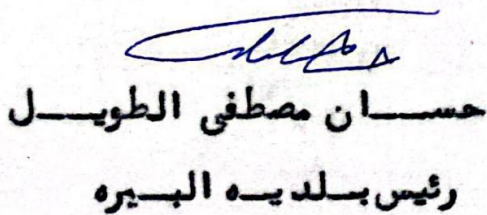 حســـان مصطفى الطويـــل
رئيس بـــلديـــه البـــيره